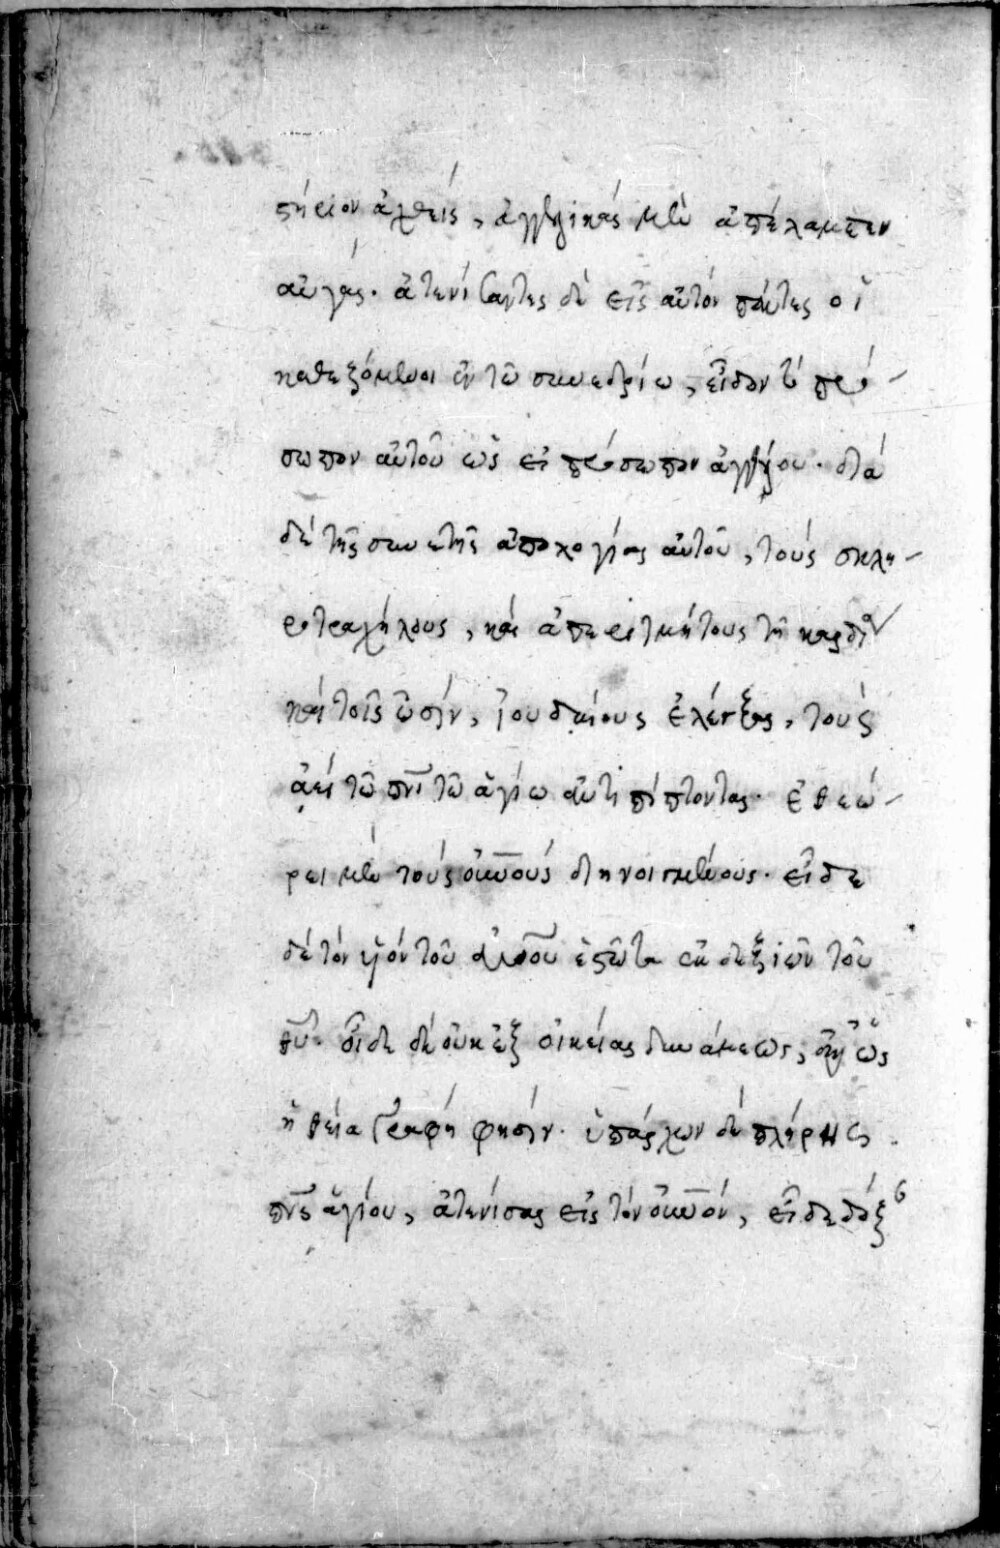 στήριον ἀχθείς, ἀγγελικάς μὲν ἀπέλαμπεν
αὐγάς· ἀτενίσαντες δὲ εἰς αὐτόν πάντες οἱ
καθεζόμενοι ἐν τῶ συνεδρίω, εἶδον τό πρό-
σωπον αὐτοῦ ὡς εἰ πρόσωπον ἀγγέλου· διά
δέ τῆς συνετῆς ἀπολογίας αὐτοῦ, τούς σκλη-
ροτραχήλους, καί ἀπεριτμήτους τῆ καρδία
καί τοῖς ὠσίν, ἰουδαίους ἐλέγξας, τούς
ἀεί τῶ πνι τῶ ἁγίω ἀντιπίπτοντας· ἐθεώ-
ρει μὲν τούς οὐνούς διηνοιγμένους· εἶδε
δέ τόν υἱόν τοῦ ἀνου ἑστῶτα ἐκ δεξιῶν τοῦ
θυ· οἶδε δέ οὐκ ἐξ οἰκείας δυνάμεως, ἀλλ' ὡς
ἡ θεία γραφή φησίν· ὑπάρχων δέ πλήρης
πνς ἁγίου, ἀτενίσας εἰς τόν οὐνόν, εἶδε δόξ